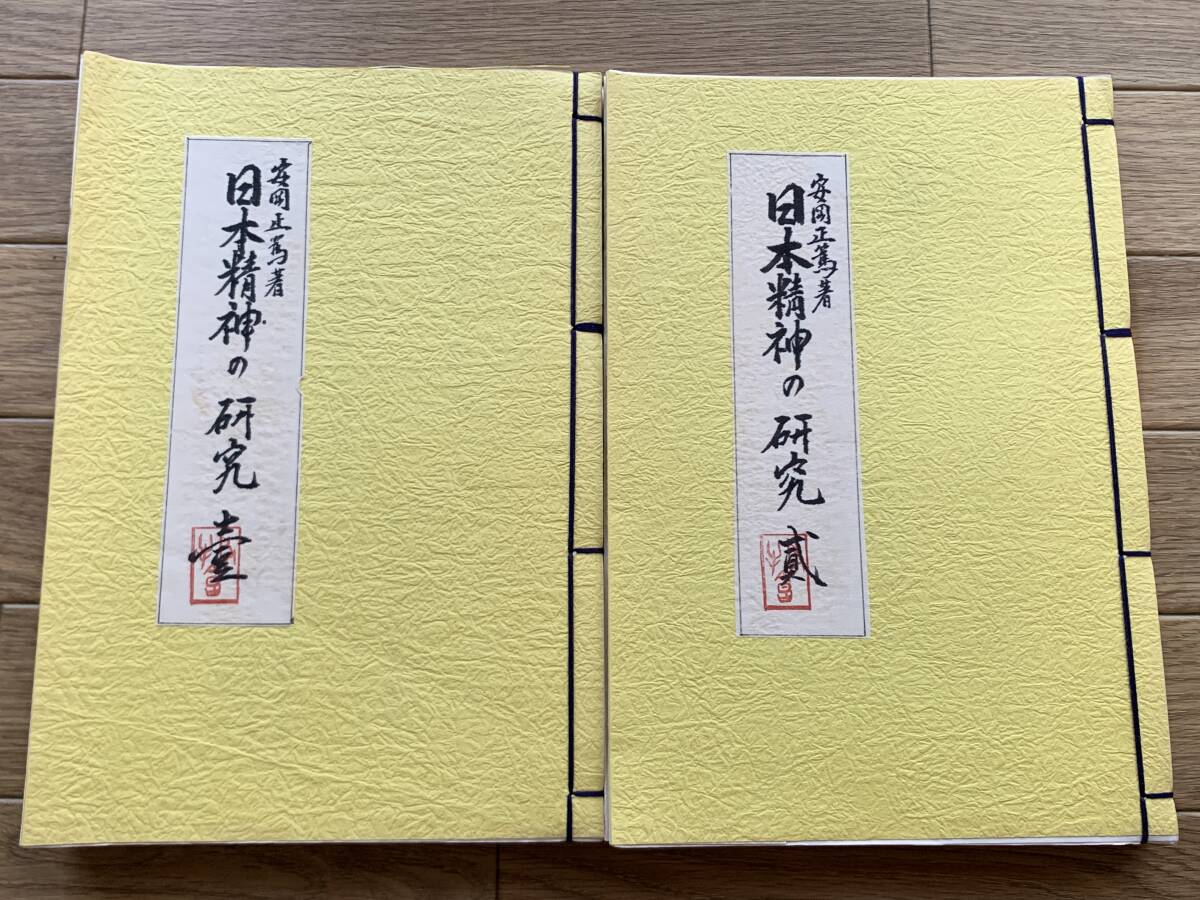 安岡正篤著
日本精神の研究 壹
安岡正篤著
日本精神の研究 貳